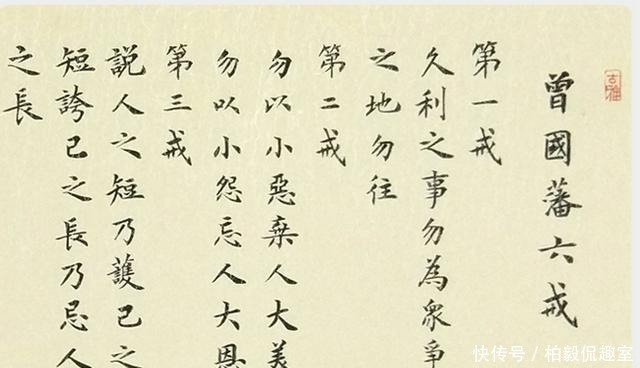 古雅
曾國藩六戒
第一戒
久利之事勿為衆爭
之地勿往
第二戒
勿以小惡棄人大美
勿以小怨忘人大恩
第三戒
説人之短乃護己之
短誇己之長乃忌人
之長
快传号 / 柏毅侃趣室